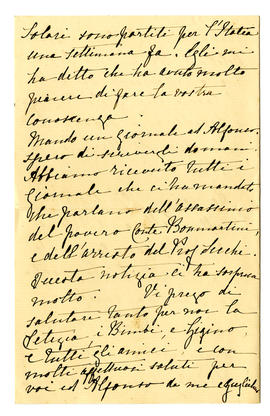 Solari sono partiti per l'Italia
una settimana fa. Egli mi
ha ditto che ha avuto molto
piacere di fare la vostra
conoscenza.
Mando un giornale ad Alfonso.
spero di scrivergli domani.
Abbiamo ricevuto tutti i
Giornale che ci ha mandato
che parlano dell'assassinio
del povero Conte Bonmartini,
e dell'arresto del Prof Secchi.
Questa notizia ci ha sorpresa
molto. Vi prego di
salutare tanto per noi la
Letizia, i Bimbi, e Gegino,
e tutti gli amici e con
molti affettuosi saluti per
voi ed Alfonso da me e Guglielmo